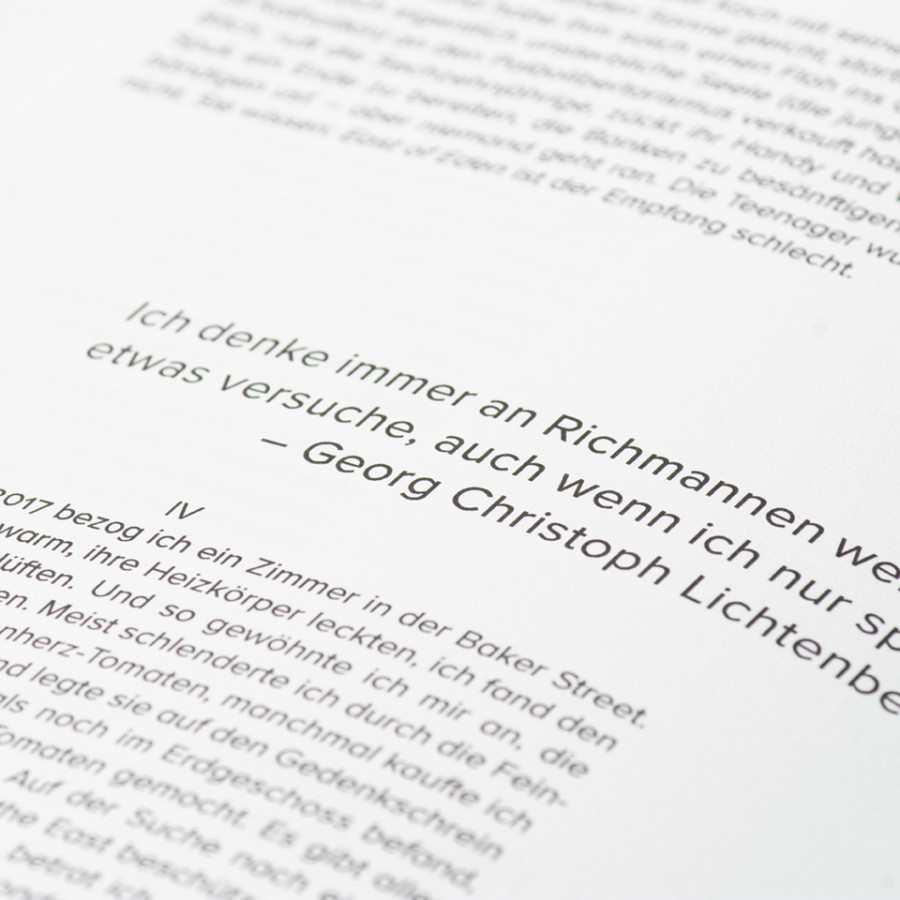 den Sonne gleicht,
einen Floh ins
eigentlich unsterbliche Seele (die
an den Postlibertarismus verkauft
Blick, ruft die Sechzehnjährige, zückt ihr Handy und
Spuk ein Ende zu bereiten, die Banken zu besänftigen
bändigen usf. – aber niemand geht ran. Die Teenager
nicht. Sie wissen, East of Eden ist der Empfang schlecht.
Ich denke immer an Richmannen we
etwas versuche, auch wenn ich nur sp
– Georg Christoph Lichtenbe
IV
2017 bezog ich ein Zimmer in der Baker Street.
warm, ihre Heizkörper leckten, ich fand den
Hüften. Und so gewöhnte ich mir an, die
en. Meist schlenderte ich durch die Fein-
nherz-Tomaten, manchmal kaufte ich
nd legte sie auf den Gedenkschrein
als noch im Erdgeschoss befand,
Tomaten gemocht. Es gibt
Auf der Suche nach
the East
betrat ich